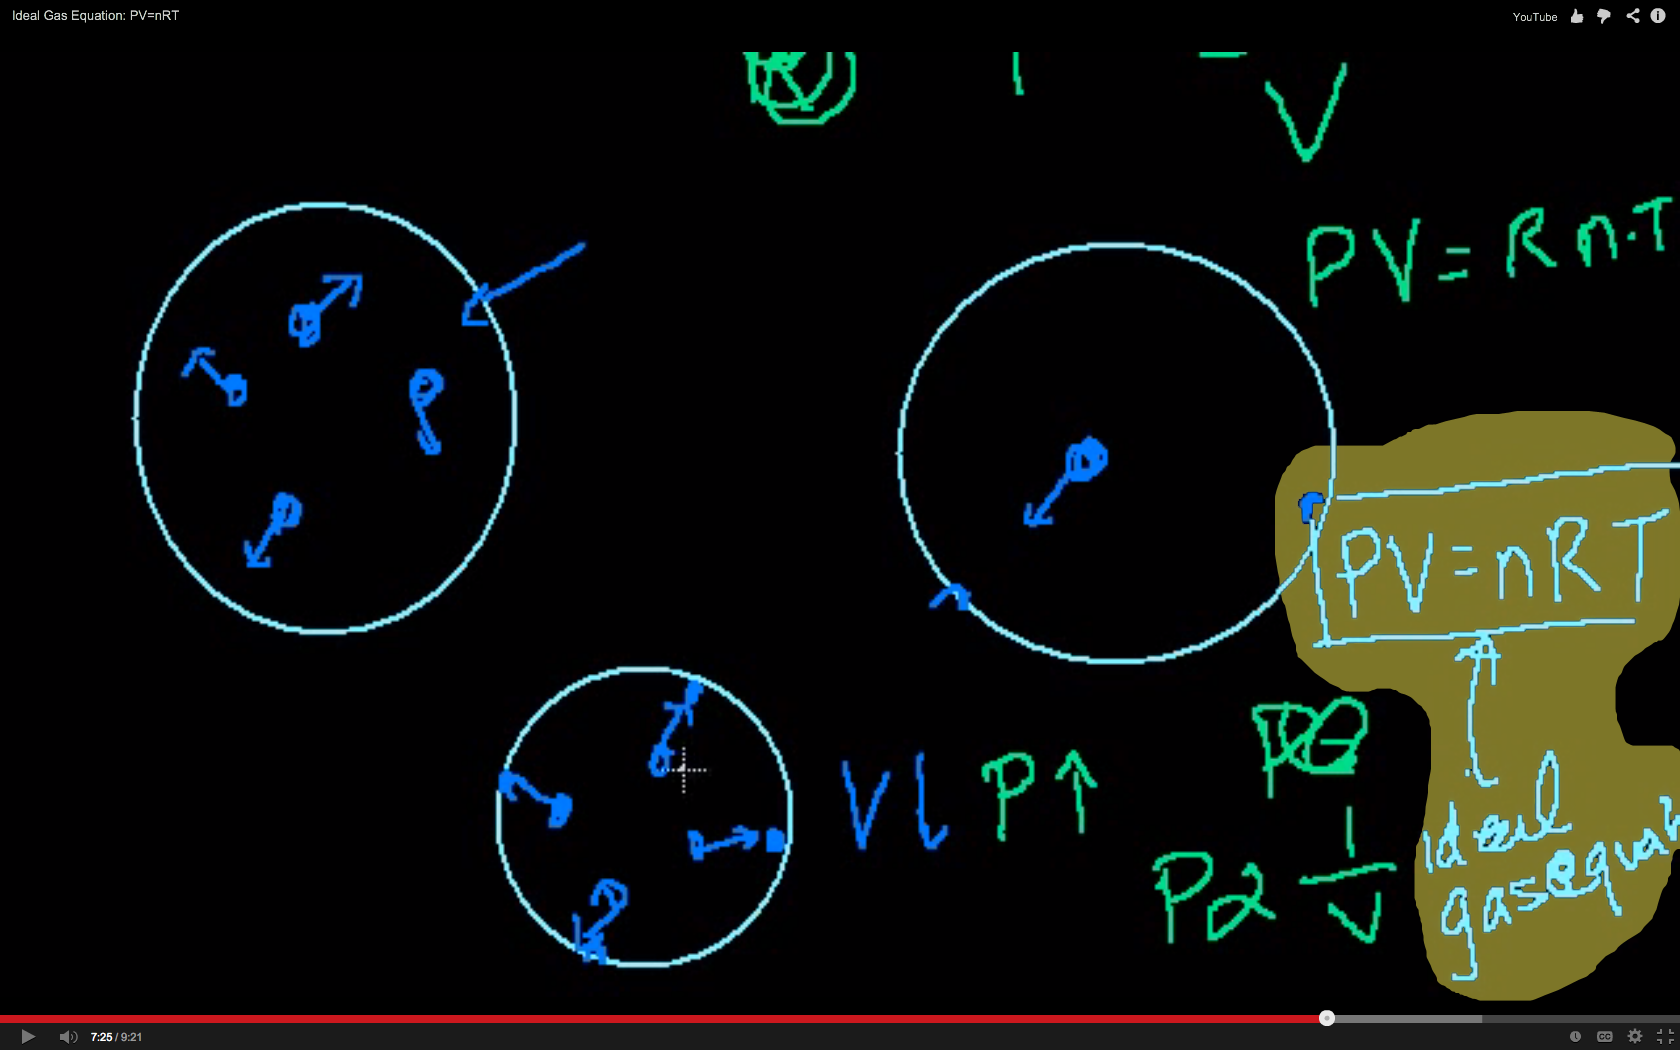 Ideal Gas Equation: PV=nRT
YouTube
V
PV = Rn.T
PV = nRT
V↓ P↑
P α 1/V
Ideal
gas equa
7:25 / 9:21
CC